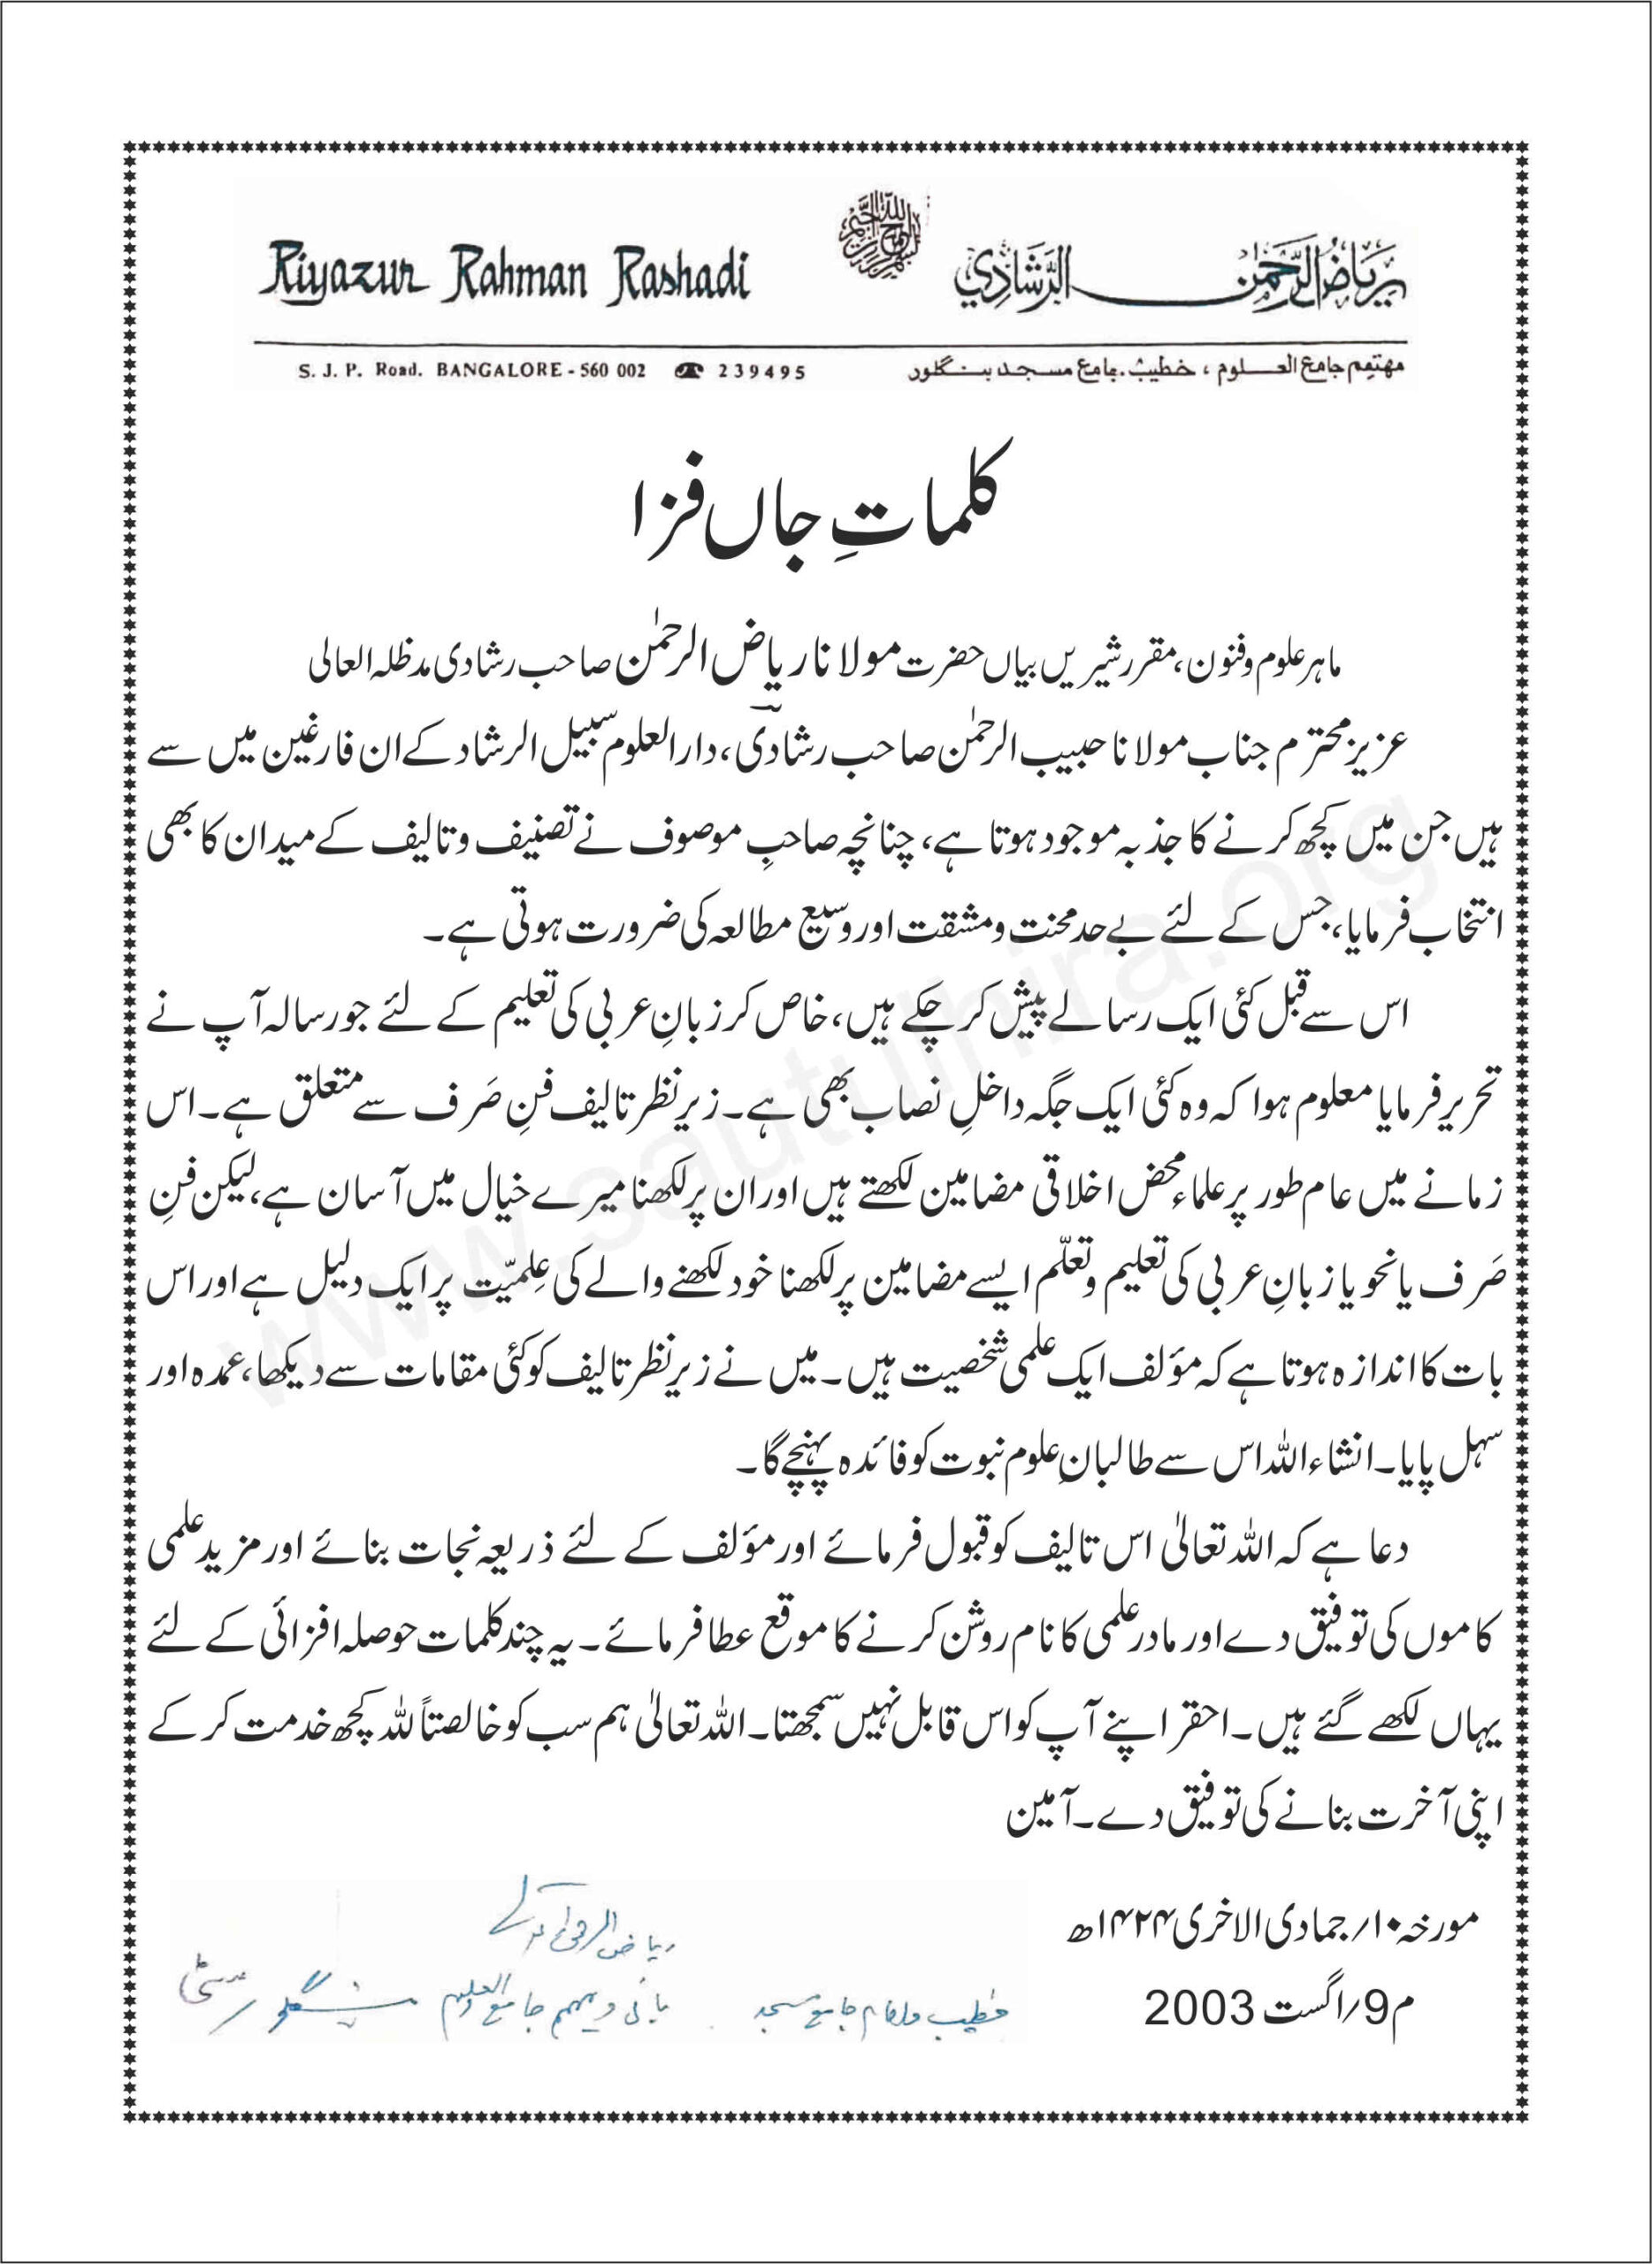 بسم اللہ الرحمن الرحیم
Riyazur Rahman Rashadi
ریاض الرحمٰن الرشادي
S. J. P. Road. BANGALORE - 560 002 ☎ 239495
مہتمم جامع العلوم ، خطیب جامع مسجد بنگلور
کلماتِ جاں فزا
ماہر علوم وفنون، مقرر شیریں بیاں حضرت مولانا ریاض الرحمٰن صاحب رشادی مدظلہ العالی
عزیز محترم جناب مولانا حبیب الرحمٰن صاحب رشادی، دارالعلوم سبیل الرشاد کے ان فارغین میں سے
ہیں جن میں کچھ کرنے کا جذبہ موجود ہوتا ہے، چنانچہ صاحبِ موصوف نے تصنیف وتالیف کے میدان کا بھی
انتخاب فرمایا، جس کے لئے بے حد محنت ومشقت اور وسیع مطالعہ کی ضرورت ہوتی ہے۔
اس سے قبل کئی ایک رسالے پیش کر چکے ہیں، خاص کر زبانِ عربی کی تعلیم کے لئے جو رسالہ آپ نے
تحریر فرمایا معلوم ہوا کہ وہ کئی ایک جگہ داخلِ نصاب بھی ہے۔ زیر نظر تالیف فنِ صَرف سے متعلق ہے۔ اس
زمانے میں عام طور پر علماء محض اخلاقی مضامین لکھتے ہیں اور ان پر لکھنا میرے خیال میں آسان ہے، لیکن فنِ
صَرف یا نحو یا زبانِ عربی کی تعلیم وتعلّم ایسے مضامین پر لکھنا خود لکھنے والے کی عِلمیّت پر ایک دلیل ہے اور اس
بات کا اندازہ ہوتا ہے کہ مؤلف ایک علمی شخصیت ہیں۔ میں نے زیر نظر تالیف کو کئی مقامات سے دیکھا، عمدہ اور
سہل پایا۔ انشاء اللہ اس سے طالبانِ علوم نبوت کو فائدہ پہنچے گا۔
دعا ہے کہ اللہ تعالیٰ اس تالیف کو قبول فرمائے اور مؤلف کے لئے ذریعہ نجات بنائے اور مزید علمی
کاموں کی توفیق دے اور مادر علمی کا نام روشن کرنے کا موقع عطا فرمائے۔ یہ چند کلمات حوصلہ افزائی کے لئے
یہاں لکھے گئے ہیں۔ احقر اپنے آپ کو اس قابل نہیں سمجھتا۔ اللہ تعالیٰ ہم سب کو خالصتاً للہ کچھ خدمت کر کے
اپنی آخرت بنانے کی توفیق دے۔ آمین
مورخہ ۱۰/ جمادی الاخری ۱۴۲۴ھ
م 9/ اگست 2003
ریاض الرحمٰن
خطیب وامام جامع مسجد
بانی و مہتمم جامع العلوم
بنگلور سٹی
www.sautulhira.org